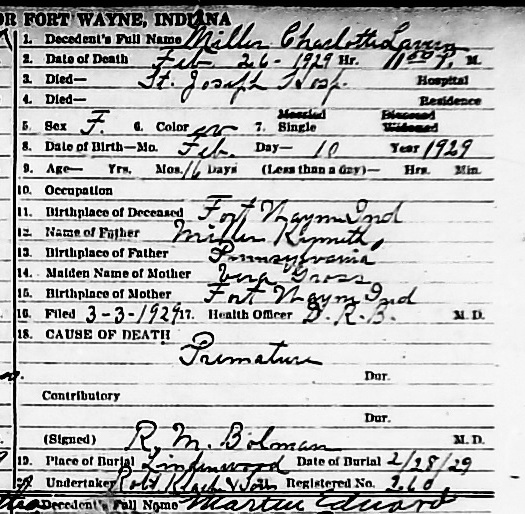 OR FORT WAYNE, INDIANA
1. Decedent's Full Name Miller Charlotte Lavern
2. Date of Death Feb 26-1929 Hr. 11 P. M.
3. Died— St. Joseph Hosp. Hospital
4. Died— Residence
Married Divorced
5. Sex F. 6. Color W 7. Single Widowed
8. Date of Birth—Mo. Feb. Day— 10 Year 1929
9. Age— Yrs. Mos. 16 Days (Less than a day)— Hrs. Min.
10. Occupation
11. Birthplace of Deceased Fort Wayne Ind
12. Name of Father Miller Kenneth
13. Birthplace of Father Pennsylvania
14. Maiden Name of Mother Vera Gross
15. Birthplace of Mother Fort Wayne Ind
16. Filed 3-3-1929 17. Health Officer D. R. B. M. D.
18. CAUSE OF DEATH
Premature
Dur.
Contributory
Dur.
(Signed) R. M. Bolman M. D.
19. Place of Burial Lindenwood Date of Burial 2/28/29
20. Undertaker Robt Klaehn & Sons Registered No. 260
Decedent's Full Name Martin Edward